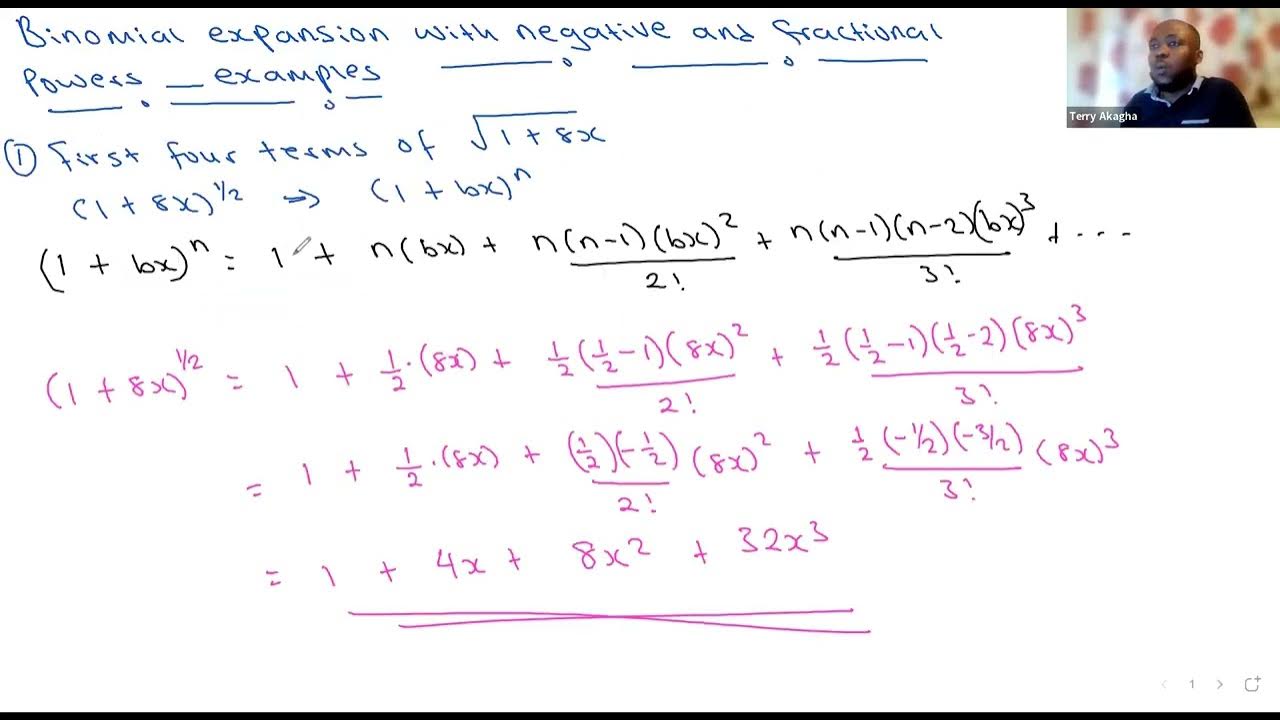 Binomial expansion with negative and fractional
Powers – examples
Terry Akagha
① First four terms of √(1 + 8x)
(1 + 8x)^1/2 => (1 + bx)^n
(1 + bx)^n = 1 + n(bx) + n(n-1)(bx)^2/2! + n(n-1)(n-2)(bx)^3/3! + ...
(1 + 8x)^1/2 = 1 + 1/2·(8x) + 1/2(1/2-1)(8x)^2/2! + 1/2(1/2-1)(1/2-2)(8x)^3/3!
= 1 + 1/2·(8x) + (1/2)(-1/2)/2! (8x)^2 + 1/2(-1/2)(-3/2)/3! (8x)^3
= 1 + 4x + 8x^2 + 32x^3
1